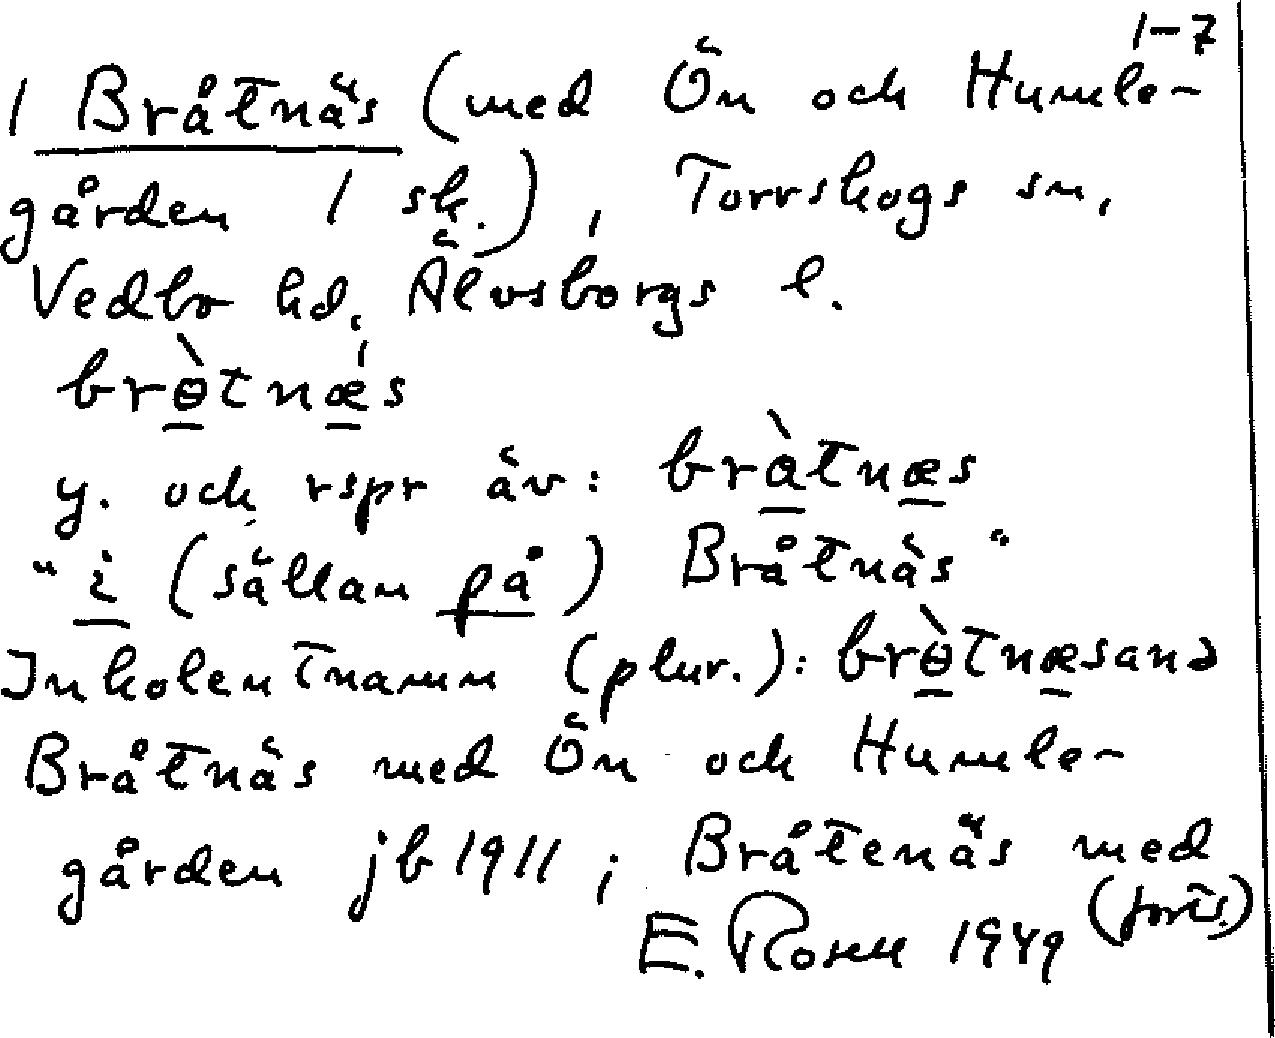 1-7
1 Bråtnäs (med Ön och Humle-
gården 1 sk.), Torrskogs sn,
Vedbo hd. Älvsborgs l.
brɵ̀tnǽs
y. och rspr äv: bràtnæs
"i (sällan på) Bråtnäs"
Inkolentnamn (plur.): brɵ̀tnæsanə
Bråtnäs med Ön och Humle-
gården jb 1911; Bråtenäs med
(forts.)
E. Rosell 1949